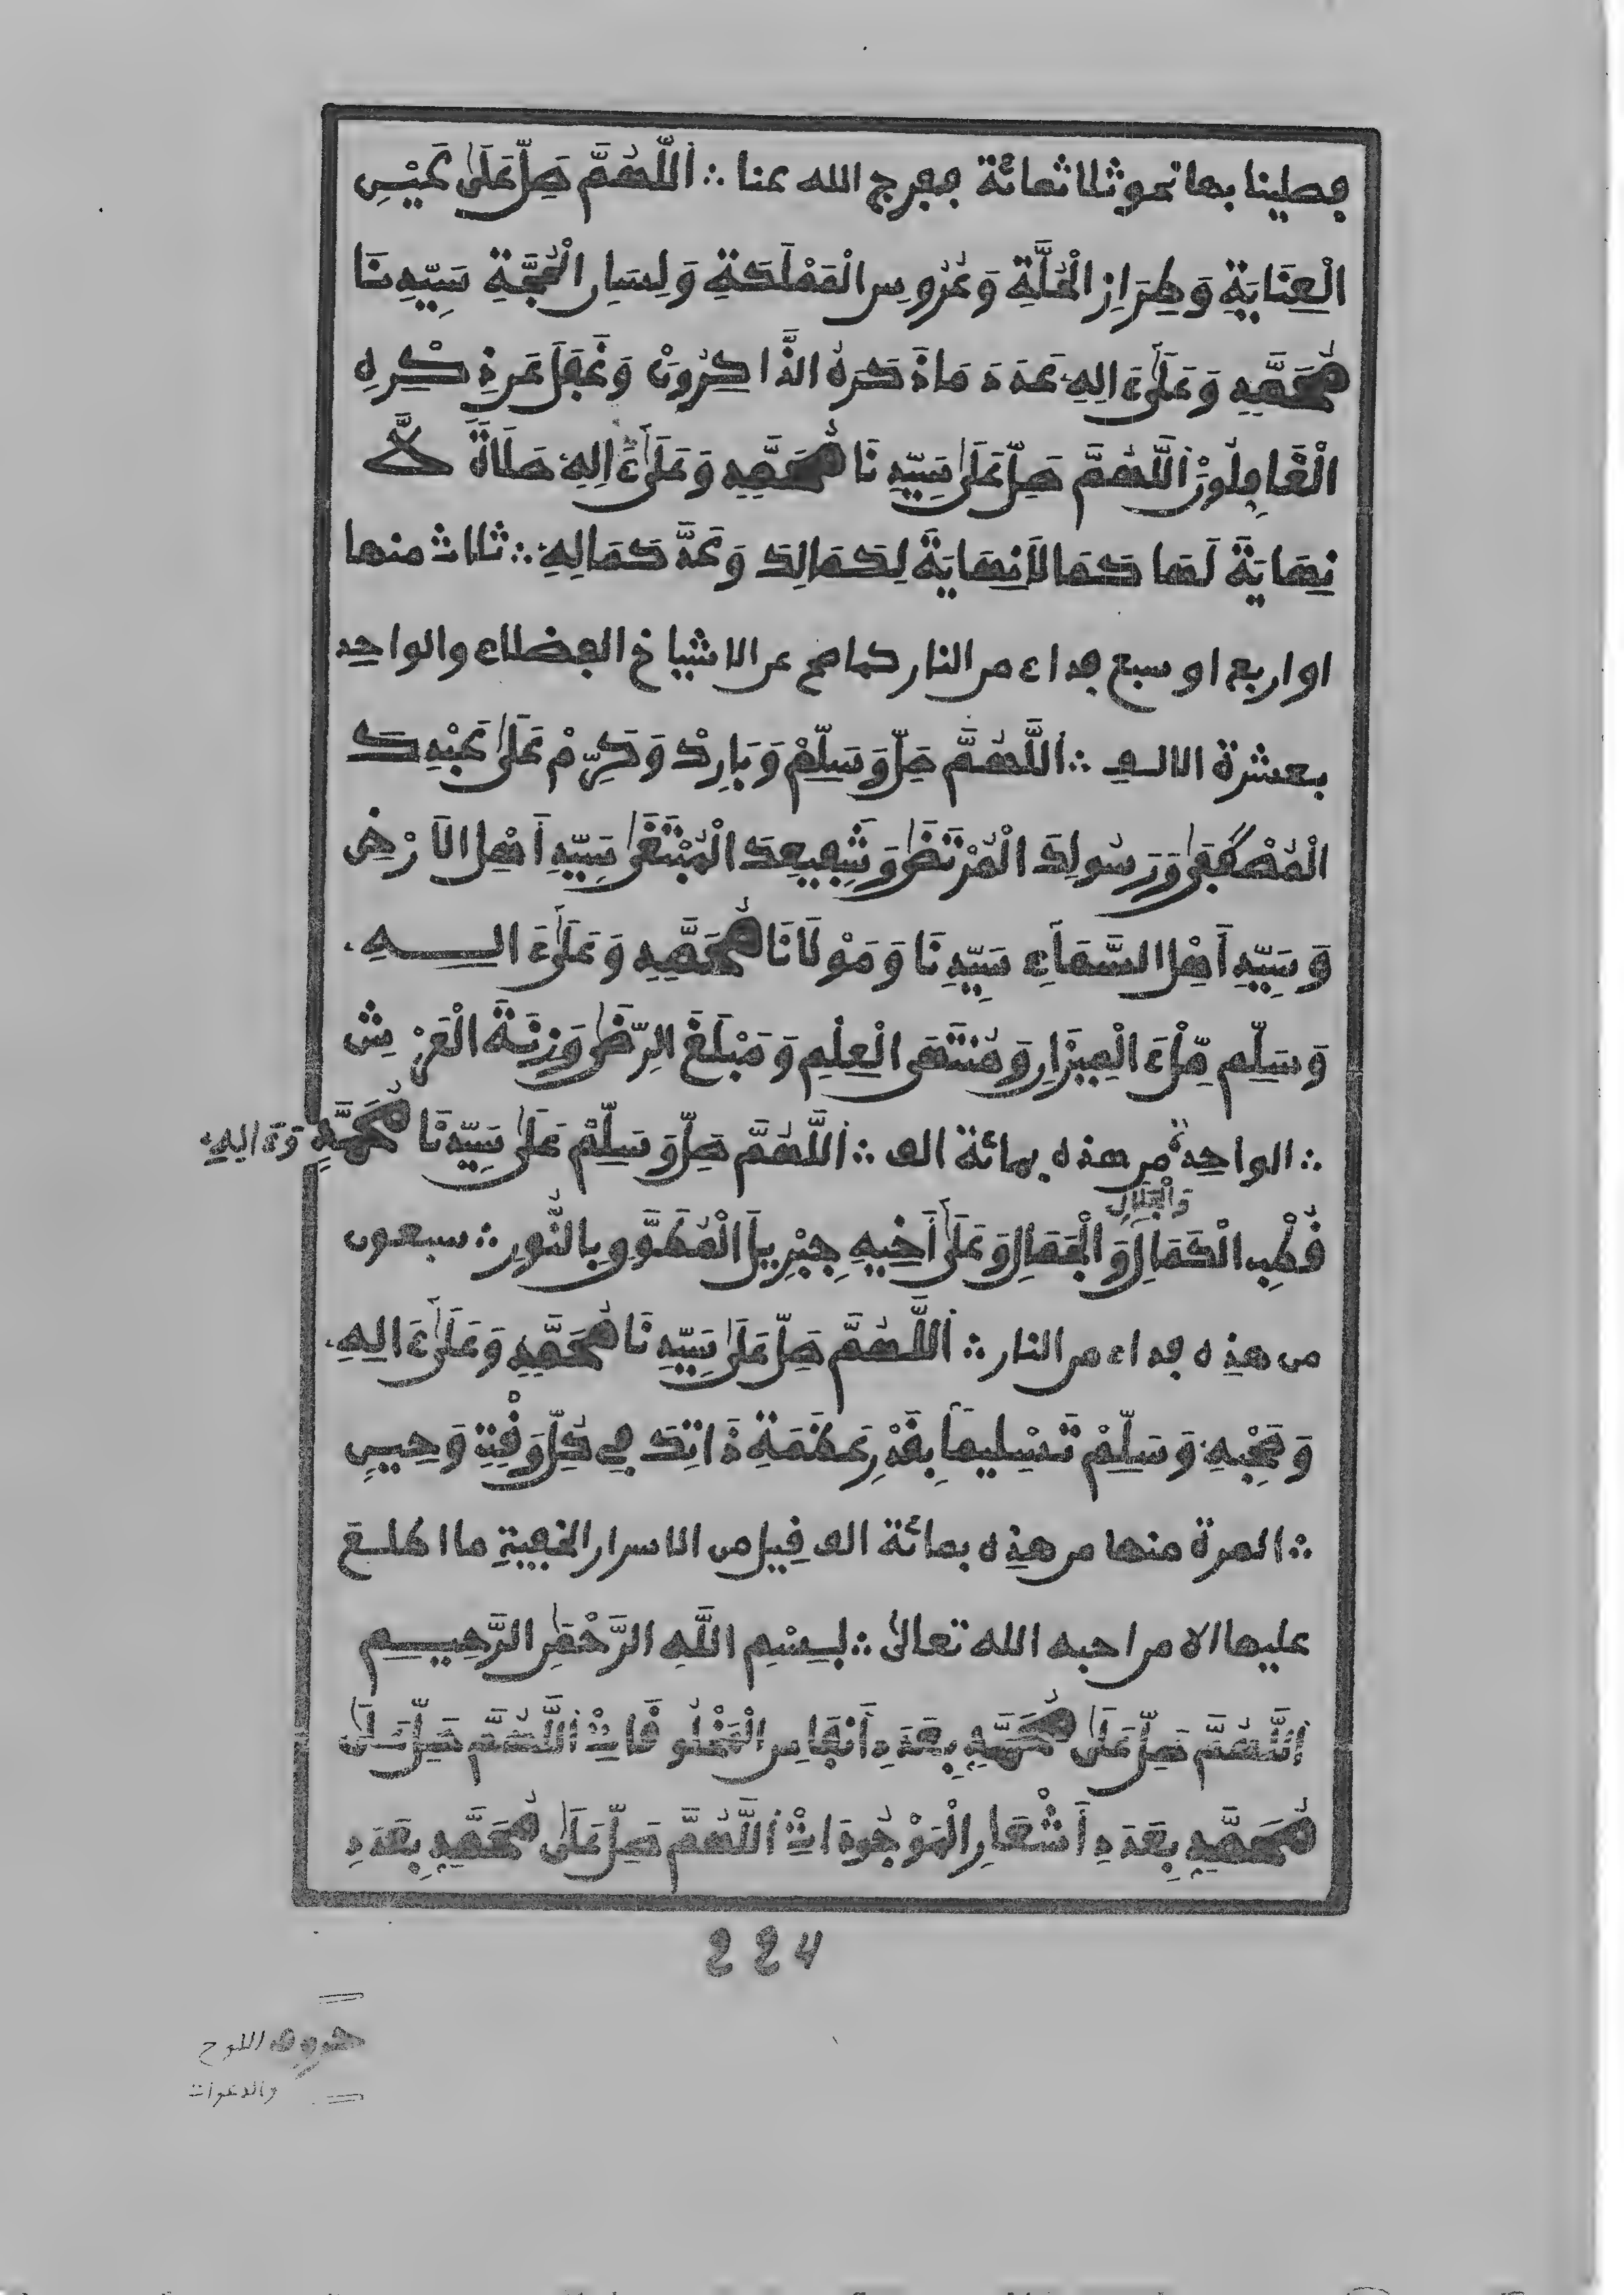 فصلينا بها نحو ثلاثمائة ففرج الله عنا ∴ اَللَّهُمَّ صَلِّ عَلَىٰ عَيْنِ
الْعِنَايَةِ وَطِرَازِ الْحُلَّةِ وَعَرُوسِ الْمَمْلَكَةِ وَلِسَانِ الْحُجَّةِ سَيِّدِنَا
مُحَمَّدٍ وَعَلَىٰ ءَالِهِ عَدَدَ مَا ذَكَرَهُ الذَّاكِرُونَ وَغَفَلَ عَن ذِكْرِهِ
الْغَافِلُونَ اَللَّهُمَّ صَلِّ عَلَىٰ سَيِّدِنَا مُحَمَّدٍ وَعَلَىٰ ءَالِهِ صَلَاةً لَّا
نِهَايَةَ لَهَا كَمَا لَا نِهَايَةَ لِكَمَالِكَ وَعَدَّ كَمَالِهِ ∴ ثلاث منها
او اربع او سبع فداء من النار كما صح عن الاشياخ الفضلاء والواحد
بعشرة الالف ∴ اَللَّهُمَّ صَلِّ وَسَلِّمْ وَبَارِكْ وَكَرِّمْ عَلَىٰ عَبْدِكَ
الْمُصْطَفَىٰ وَرَسُولِكَ الْمُرْتَضَىٰ وَشَفِيعِكَ الْمُبْتَغَىٰ سَيِّدِ أَهْلِ الَارْضِ
وَسَيِّدِ أَهْلِ السَّمَاءِ سَيِّدِنَا وَمَوْلَانَا مُحَمَّدٍ وَعَلَىٰ ءَالِهِ
وَسَلِّم مِّلْءَ الْمِيزَانِ وَمُنتَهَى الْعِلْمِ وَمَبْلَغَ الرِّضَىٰ وَزِنَةَ الْعَرْشِ
∴ الواحدة من هذه بمائة الف ∴ اَللَّهُمَّ صَلِّ وَسَلِّمْ عَلَىٰ سَيِّدِنَا مُحَمَّدٍ وَءَالِهِ
قُطْبِ الْكَمَالِ وَالْجَمَالِ وَالْجَلَالِ وَعَلَىٰ أَخِيهِ جِبْرِيلَ الْمُطَوَّقِ بِالنُّورِ ∴ سبعون
من هذه فداء من النار ∴ اَللَّهُمَّ صَلِّ عَلَىٰ سَيِّدِنَا مُحَمَّدٍ وَعَلَىٰ ءَالِهِ
وَصَحْبِهِ وَسَلِّمْ تَسْلِيماً بِقَدْرِ عَظَمَةِ ذَاتِكَ فِي كُلِّ وَقْتٍ وَحِينٍ
∴ المرة منها من هذه بمائة الف قيل من الاسرار الخفية ما اطلع
عليها الا من احبه الله تعالىٰ ∴ بِسْمِ اللَّهِ الرَّحْمَٰنِ الرَّحِيمِ
اَللَّهُمَّ صَلِّ عَلَىٰ مُحَمَّدٍ بِعَدَدِ أَنفَاسِ الْمَخْلُوقَاتْ اَللَّهُمَّ صَلِّ عَلَىٰ
مُحَمَّدٍ بِعَدَدِ أَشْعَارِ الْمَوْجُودَاتْ اَللَّهُمَّ صَلِّ عَلَىٰ مُحَمَّدٍ بِعَدَدِ
224
حروف اللوح
والدعوات